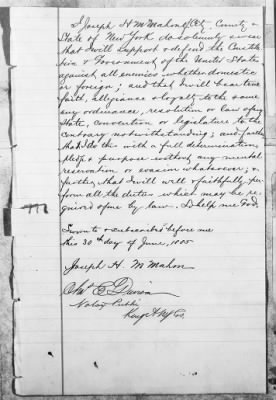 I Joseph H McMahon, City, County &
State of New York do solemnly swear
that I will support & defend the Consti-
tution & Government of the United States
against all enemies whether domestic
or foreign; and that I will bear true
faith, allegiance & loyalty to the same
any ordinance, resolution or law of any
State, convention or legislature to the
contrary notwithstanding; and further
that I do this with a full determination,
pledge & purpose without any mental
reservation or evasion whatsoever; &
further, that I will well & faithfully per-
form all the duties which may be re-
quired of me by law. So help me God.
Sworn to & subscribed before me
this 30th day of June, 1865
Joseph H. McMahon
Notary Public
Kings & NY Co.